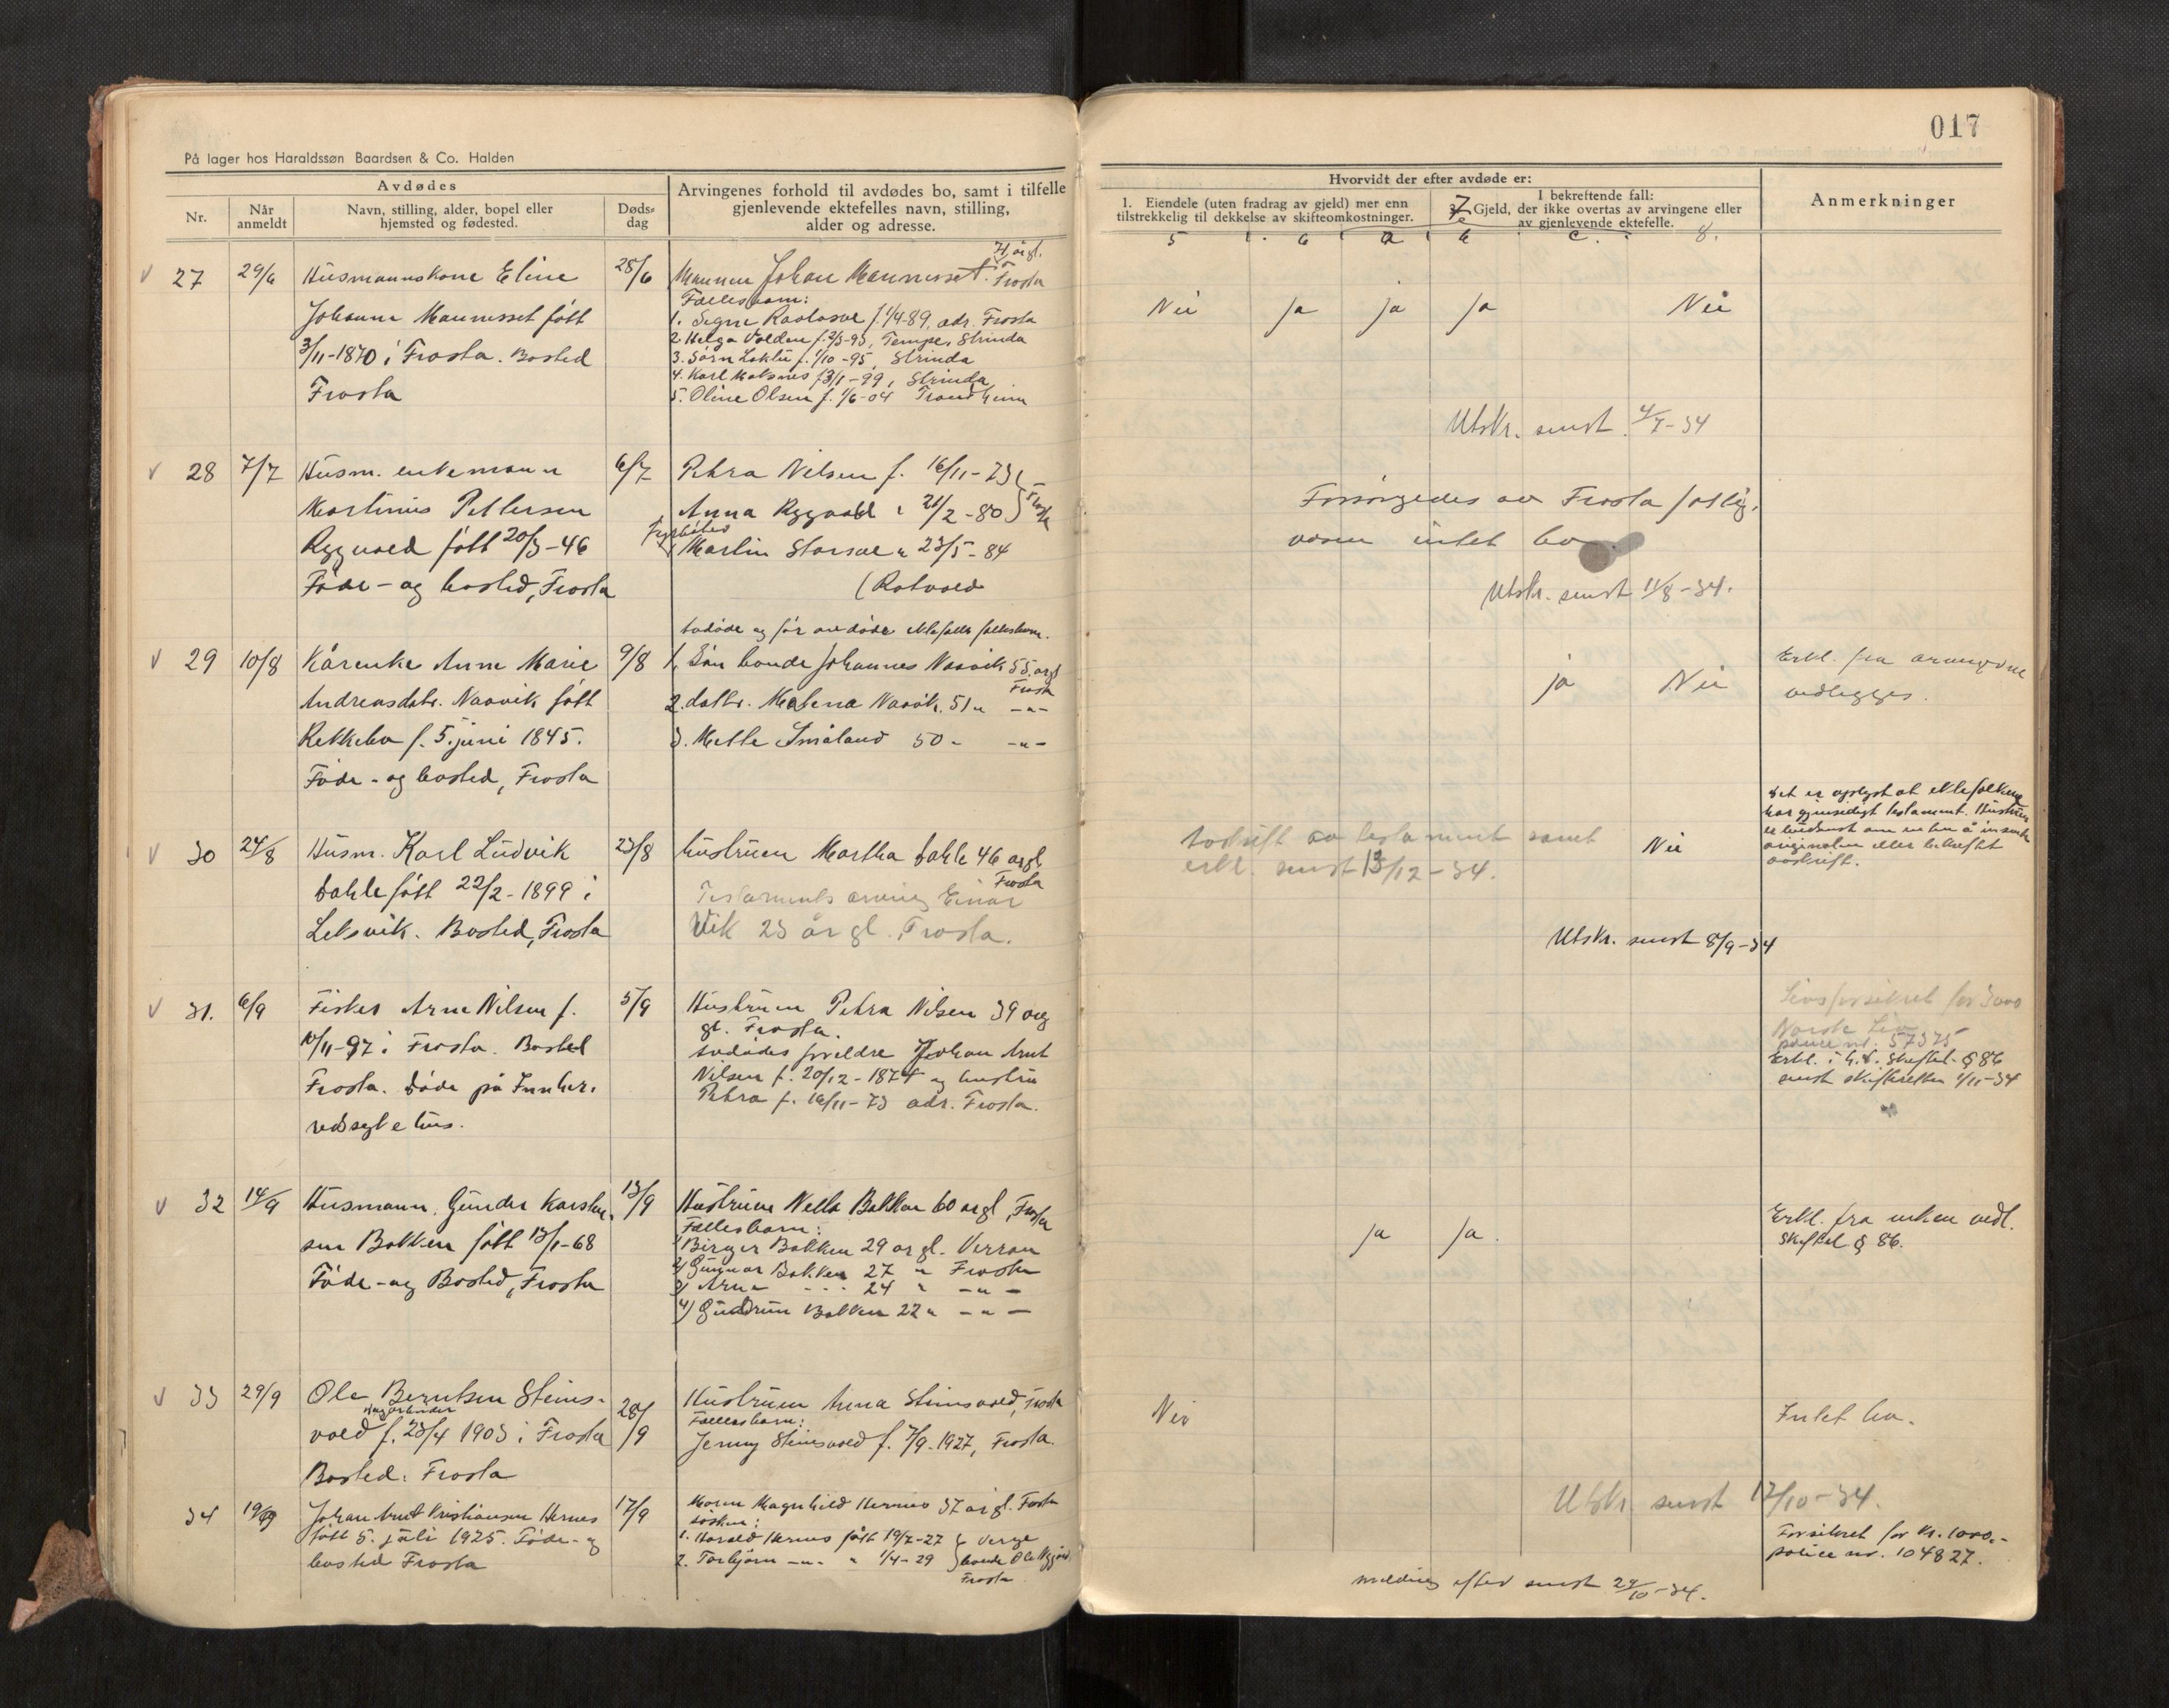 017
På lager hos Haraldssøn Baardsen & Co. Halden
Avdødes
Nr.
Når anmeldt
Navn, stilling, alder, bopel eller
hjemsted og fødested.
Døds-
dag
Arvingenes forhold til avdødes bo, samt i tilfelle
gjenlevende ektefelles navn, stilling,
alder og adresse.
Hvorvidt der efter avdøde er:
1. Eiendele (uten fradrag av gjeld) mer enn
tilstrekkelig til dekkelse av skifteomkostninger.
I bekreftende fall:
7 Gjeld, der ikke overtas av arvingene eller
av gjenlevende ektefelle.
Anmerkninger
5 6 a b c. 8.
27 29/6 Husmannskone Eline 28/6
Johanna Mannesset født
3/11-1870 i Frosta. Bosted
Frosta
71 årgl.
Mannen Johan Mannesset. Frosta
Fællesbarn:
1. Signe f. 1/4-89, adr. Frosta
2. Helga Volden Tempe, Strinda
3. f. 1/10-95, Strinda
4. Karl f. 3/1-99, Strinda
5. Oline Olsen f. 1/6-04 Trondheim
Nei ja ja ja Nei
Utskr. sendt 4/7-34
28 7/7 Husm. enkemann 6/7
Martinus Pettersen
Rygvold født 20/3-46
Føde- og bosted, Frosta
Petra Nilsen f. 16/11-73
Anna Rygvold " 21/2-80 Frosta
Martin Storsve " 23/5-84
(Rotvold
Forsørgedes av Frosta fattig.
vesen intet bo.
Utskr. sendt 11/8-34.
29 10/8 Kårenke Anne Marie 9/8
Andreasdatr. Navik født
Rekkebo f. 5. juni 1845.
Føde- og bosted, Frosta
avdøde og før avdøde ektefælles fællesbarn.
1. Søn bonde Johannes 55 årgl
Frosta
2. dattr. 51 " -"-
3. Mette Småland 50 " -"-
ja Nei
Erkl. fra arvingene
vedlegges.
30 24/8 Husm. Karl Ludvik 23/8
Dahle født 22/2-1899 i
Leksvik. Bosted, Frosta
hustruen Martha Dahle 46 årgl
Frosta
Testaments arving Einar
Vik 23 år gl. Frosta.
Avskrift av testament samt
erkl. sendt 13/12-34.
Nei
Det er oplyst at ektefolkene
har gjensidigt testament. Hustruen
er om å insende
originalen eller bekreftet
avskrift.
Utskr. sendt 8/9-34
31. 6/9 Fisker Arne Nilsen f. 5/9
10/11-97 i Frosta. Bosted
Frosta. Døde på Innher.
redsykehus.
Hustruen Petra Nilsen 39 årg
gl. Frosta.
Avdødes foreldre Johan Arnt
Nilsen f. 20/12-1874 og hustru
Petra f. 16/11-73 adr. Frosta.
Livsforsikret for 3000
Norske Liv
police nr. 57375
Erkl. i h.t. skiftel. § 86
sendt skifteretten 1/11-34
32 14/9 Husmann. Gunder Karsten- 13/9
sen Bakken født 13/1-68
Føde- og Bosted, Frosta
Hustruen Nella Bakken 60 årgl, Frosta
Fællesbarn:
1) Birger Bakken 29 årgl. Verran
2) Gunnar Bakken 27 " Frosta
3) Arne - - - 24 " -"-
4) Gudrun Bakken 22 " -"-
ja ja.
Erkl. fra enken vedl.
Skiftel § 86.
33 29/9 Ole Berntsen Steins- 28/9
vold f. 23/4 1903 i Frosta
Bosted: Frosta
Hustruen Anna Steinsvold, Frosta
Fællesbarn:
Jenny Steinsvold f. 7/9-1927, Frosta.
Nei
Intet bo.
Utskr. sendt 12/10-34.
34 19/9 Johan Arnt Kristiansen Hernes 17/9
født 5. juli 1925. Føde- og
bosted Frosta
Moren Magnhild Hernes 37 årgl. Frosta
søsken:
1. Harald Hernes født 19/7-27 Verge
2. Torbjørn -"- " 1/4-29 bonde Ole
Frosta
Forsikret for kr. 1000.-
police nr. 104827.
melding efter sendt 24/10-34.